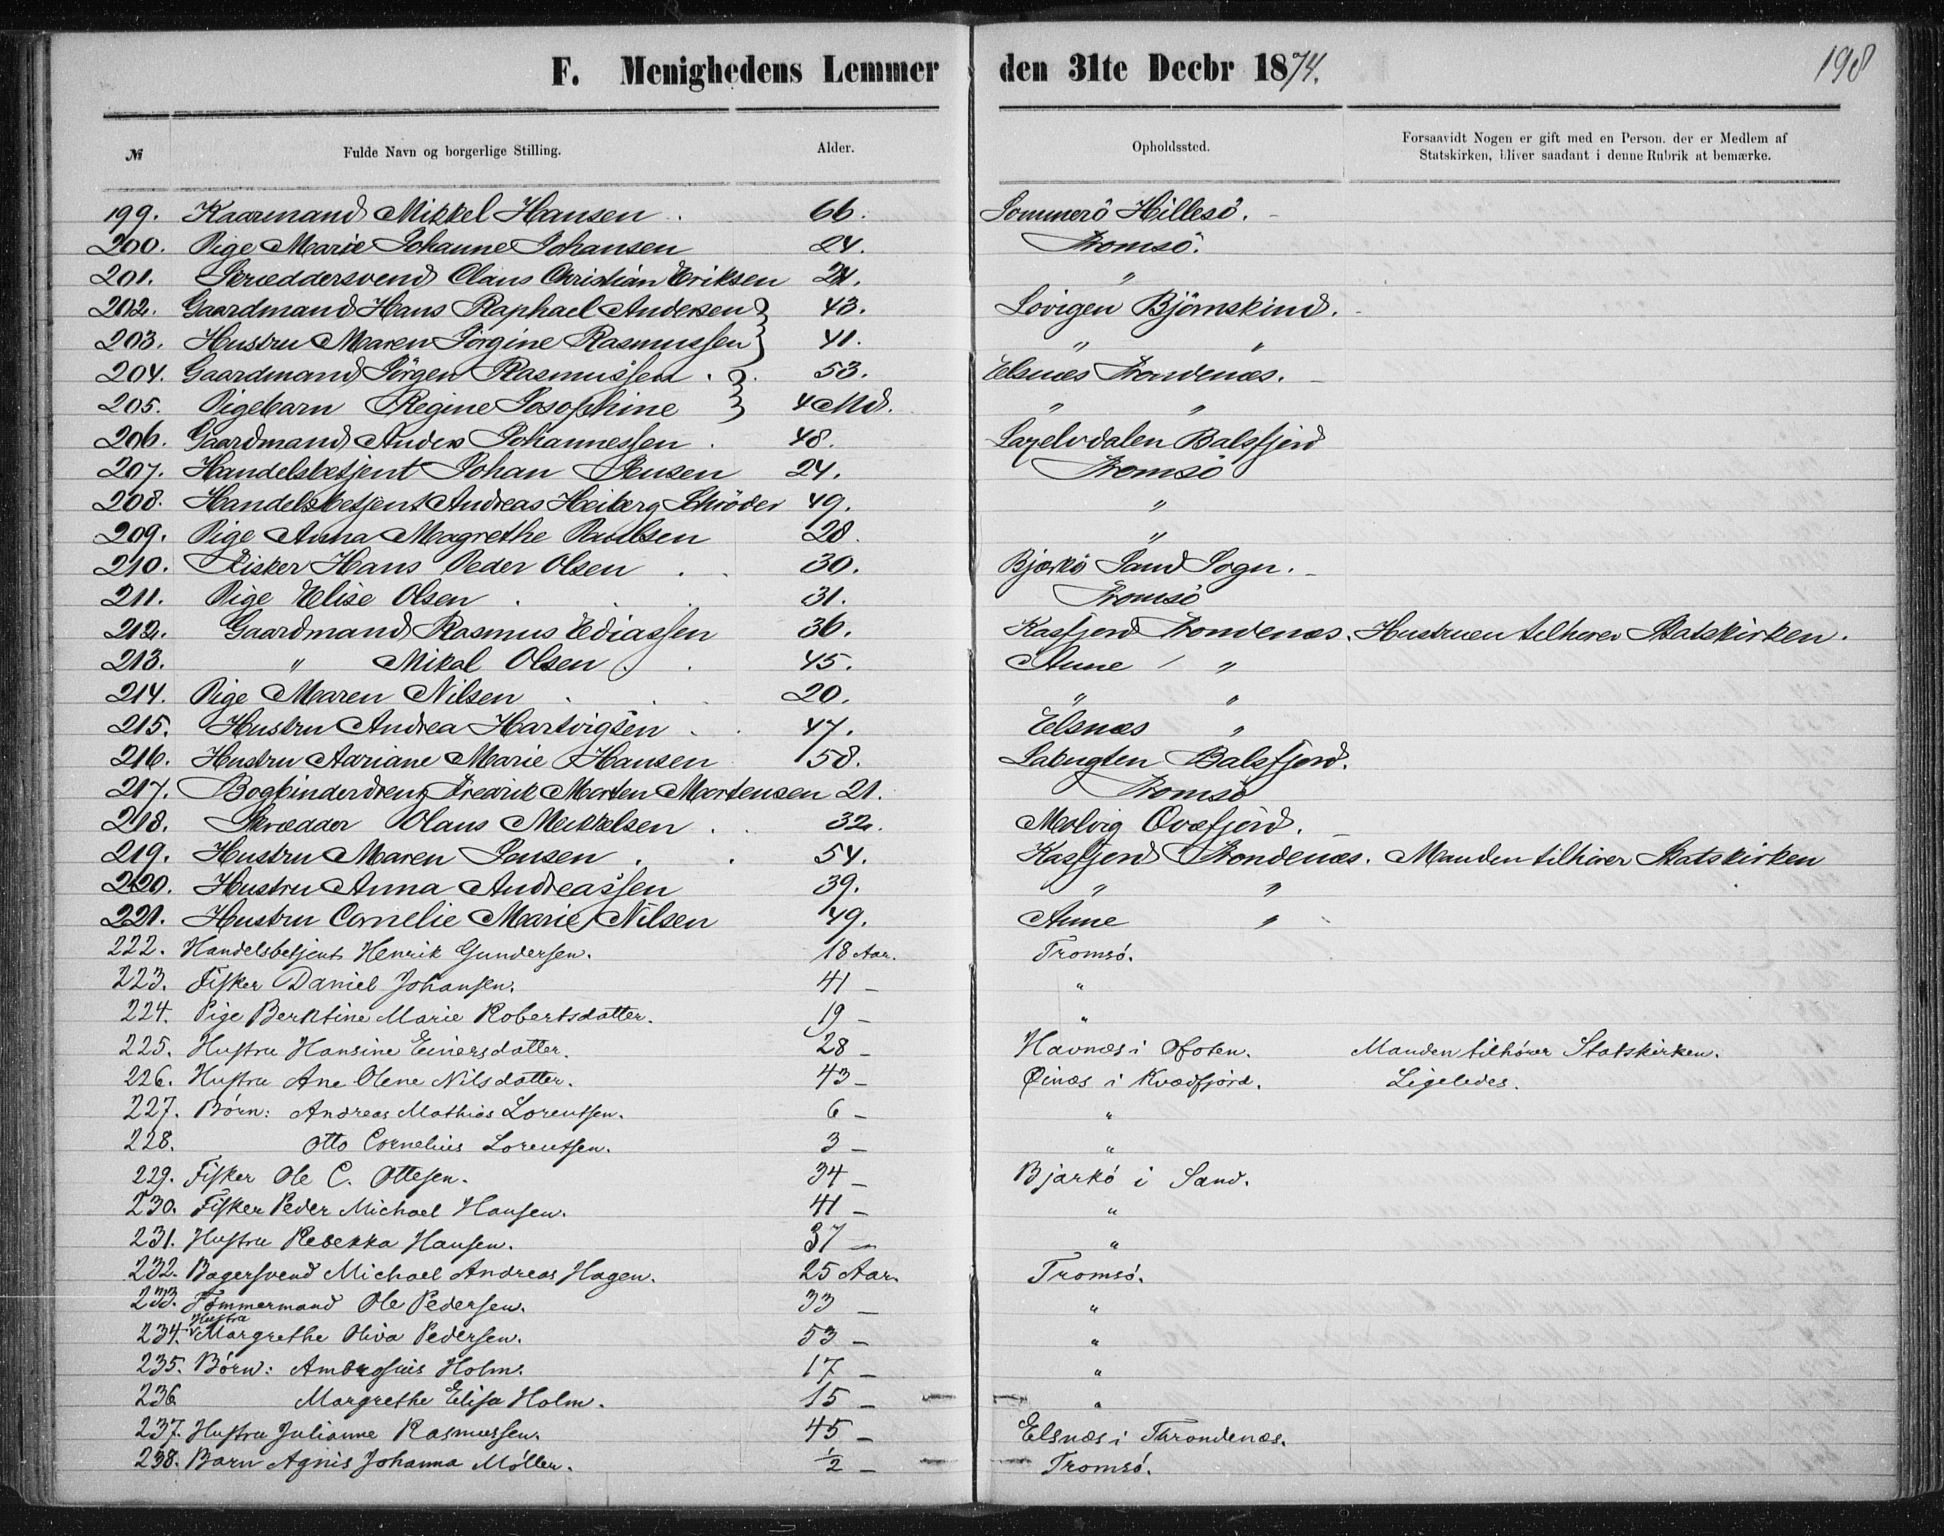 F. Menighedens Lemmer den 31te Decbr 1874. 198
№ Fulde Navn og borgerlige Stilling. Alder. Opholdssted. Forsaavidt Nogen er gift med en Person, der er Medlem af
Statskirken, bliver saadant i denne Rubrik at bemærke.
199. Kaarmand Mikkel Hansen . 66. Sommerö Hillesö.
200. Pige Marie Johanne Johansen 24. Tromsö.
201. Skræddersvend Claus Christian Eriksen 21. "
202. Gaardmand Hans Raphael Andersen 43. Lovigen Björnskind.
203. Hustru Maren Jörgine Rasmussen 41. " "
204. Gaardmand Jörgen Rasmussen . 53. Elsnæs Trondenæs.
205. Pigebarn Regine Josophine 4 Md. " "
206. Gaardmand Anders Johannessen . 48. Sagelvdalen Balsfjord
207. Handelsbetjent Johan Jensen 24. Tromsö
208. Handelsbetjent Andreas Heiberg Schrøder 49. "
209. Pige Anna Magrethe Paulsen 28. "
210. Fisker Hans Peder Olsen . . 30. Bjarkö Sand Sogn.
211. Pige Elise Olsen . . . 31. Tromsö
212. Gaardmand Rasmus Ediassen 36. Kasfjord Trondenæs. Hustruen tilhører Statskirken.
213. " Mikal Olsen . . 45. Aune "
214. Pige Maren Nilsen . . . 20. " "
215. Hustru Andrea Hartvigsen . . 47. Elsnæs "
216. Hustru Aariane Marie Hansen 58. Balsfjord.
217. Bogbinderdreng Fredrik Morten Mortensen 21. Tromsö
218. Skrædder Olaus Mekkelsen . . 32. Melvig Qvæfjord.
219. Hustru Maren Jensen . . 54. Kasfjord Trondenæs. Manden tilhører Statskirken
220. Hustru Anna Andreassen 39. " "
221. Hustru Cornelie Marie Nilsen 49. Aune "
222. Handelsbetjent Henrik Gundersen. 18 Aar. Tromsö.
223. Fisker Daniel Johansen. 41 – "
224. Pige Berktine Marie Robertsdatter. 19 – "
225. Hustru Hansine Einersdatter. 28 – Havnæs i Ofoten. Manden tilhører Statskirken.
226. Hustru Ane Olene Nilsdatter. 43 – Øinæs i Kvædfjord. Ligeledes.
227. Børn: Andreas Mathias Lorentsen. 6 – "
228. Otto Cornelius Lorentsen. 3 – "
229. Fisker Ole C. Ottesen. 34 – Bjarkó i Sand.
230. Fisker Peder Michael Hansen. 41 – "
231. Hustru Rebekka Hansen. 37 – "
232. Bagersvend Michael Andreas Hagen. 25 Aar. Tromsó.
233. Tømmermand Ole Pedersen. 33 – "
234. Hustru Margrethe Oliva Pedersen. 53 – "
235. Børn: Ambrosius Holm. 17 – "
236 Margrethe Elisa Holm. 15 – "
237. Hustru Julianne Rasmussen. 45 – Elsnæs i Throndenæs.
238. Barn Agnis Johanna Møller. ½ – Tromsó.